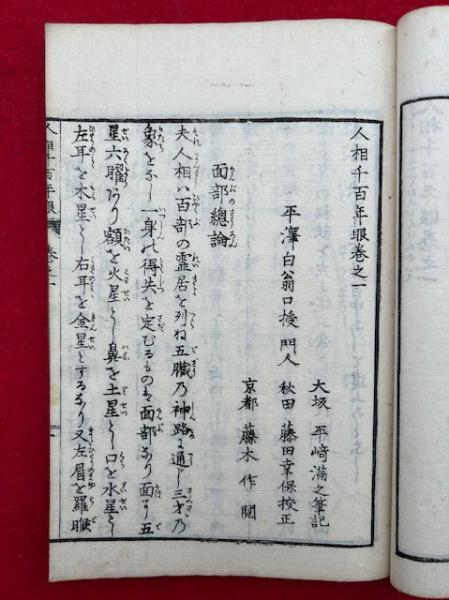 人相千百年眼巻之一
大坂 平崎満之筆記
平澤白翁口授 門人 秋田 藤田幸保校正
京都 藤木 作 閲
面部總論
夫人相ハ百部の霊居を列ね五臓乃神路に通し三才乃
象をなし一身の得失を定むるものは面部なり面に五
星六曜あり額を火星とし鼻を土星とし口を水星とし
左耳を木星とし右耳を金星とするなり又左眉を羅睺
人相千百年眼 巻之一